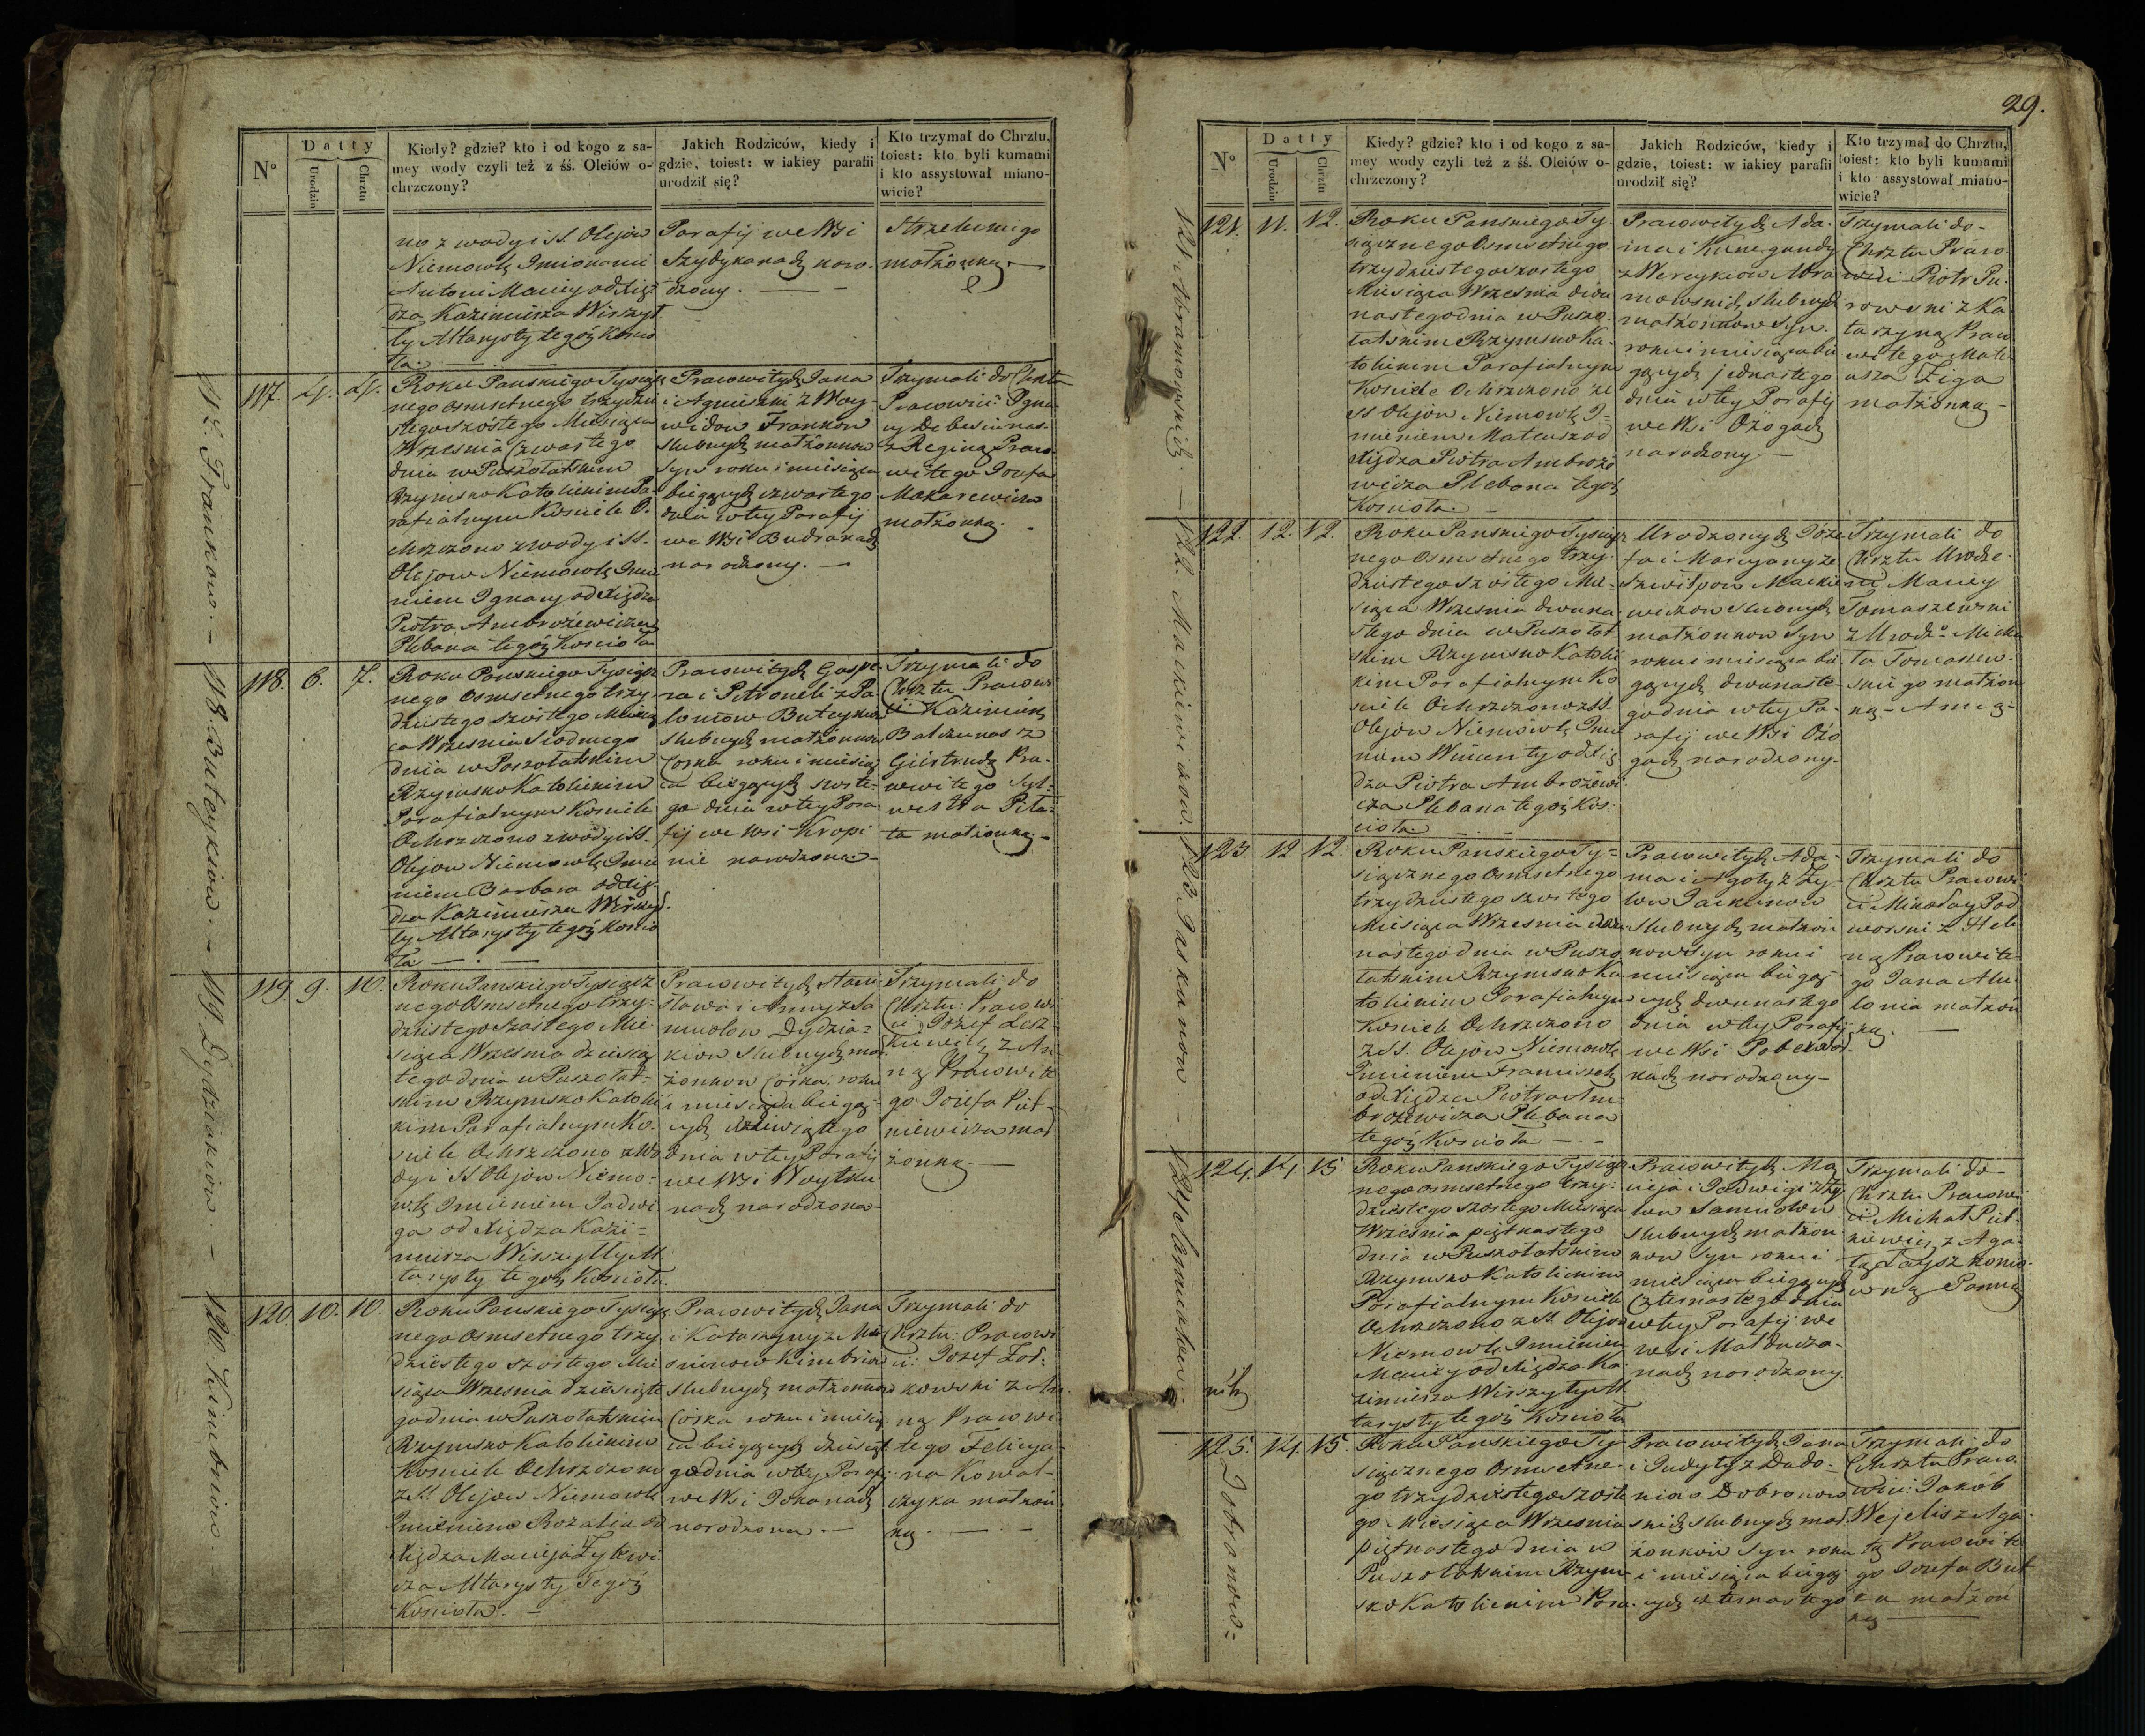 29.
N°
Datty
Urodzin
Chrztu
Kiedy? gdzie? kto i od kogo z sa-
mey wody czyli też z śś. Oleiów o-
chrzczony?
Jakich Rodziców, kiedy i
gdzie, toiest: w iakiey parafii
urodził się?
Kto trzymał do Chrztu,
toiest: kto byli kumami
i kto assystował miano-
wicie?
no z wody i SS. Olejow
Niemowlę Imionami
Antoni Maciey od Xię
dza Kazimierza Wirszył
ły Altarysty tegóż Kościo
ła.
Parafij we Wsi
Szydykanach naro-
dzony.
Strzeleckiego
małżonką.
117. Frankow.
117. 4. 4.
Roku Pańskiego Tysiącz
nego osmsetnego trzydzie
stego szostego Miesiąca
Września Czwartego
dnia w Puszołatskim
Rzymsko Katolickim Pa-
rafialnym Kosciele O-
chrzczono z wody i SS.
Olejow Niemowlę Imie
niem Ignacy od Xiędza
Piotra Ambrożewicza
Plebana tegóż Kościoła
Pracowitych Jana
i Agnieszki z Woy-
widow Frankow
slubnych małżonkow
Syn roku i miesiąca
bieżących czwartego
dnia w tey Parafij
we Wsi Budrakach
narodzony.
Trzymali do Chrztu
Pracowici: Igna-
cy Debesiunas
z Reginą Praco
witego Jozefa
Makarewicza
małżonką.
118. Buteykiow.
118. 6. 7.
Roku Pańskiego Tysiącz
nego Osmsetnego trzy-
dziestego szostego Miesią
ca Września Siodmego
dnia w Poszołatskim
Rzymsko Katolickim
Parafialnym Kosciele
Ochrzczono z wody i SS.
Olejow Niemowlę Imie
niem Barbara od Xię-
dza Kazimierza Wirszył-
ły Altarysty tegóż Kościo
ła
Pracowitych Gaspe-
ra i Petroneli z Pa-
loniow Buteykiow
slubnych małżonkow
Corka roku i miesią
ca bieżących szoste-
go dnia w tey Para
fij we Wsi Kropi
nie narodzona
Trzymali do
Chrztu Pracowi
ci: Kazimierz
Balczunas z
Giertrudą Pra-
cowitego Syl-
westra Piła-
ta małżonką
119. Dydziakiow.
119 9. 10.
Roku Pańskiego Tysiącz
nego Osmsetnego trzy-
dziestego szostego Mie-
siąca Września dziesią
tego dnia w Puszołat-
skim Rzymsko Katolic
kim Parafialnym Ko-
sciele Ochrzczono z Wo
dy i SS Olejow Niemo-
wlę Imieniem Jadwi
ga od Xiędza Kazi-
mierza Wirszyłły Al
tarysty tegoż Kościoła
Pracowitych Stani
sława i Anny z Sa
mulow Dydzia-
kiow slubnych mał
żonkow Corka, roku
i miesiąca bieżą-
cych dziewiątego
dnia w tey Parafij
we Wsi Woytku
nach narodzona
Trzymali do
Chrztu: Pracowi
ci: Jozef Lesz-
kiewicz z An
ną Pracowite
go Jozefa Piet-
kiewicza mał
żonką.
120. Kimbriow.
120. 10. 10.
Roku Pańskiego Tysiącz
nego Osmsetnego trzy
dziestego szostego Mie
siąca Września dziesiąte
go dnia w Puszołatskim
Rzymsko Katolickim
Kosciele Ochrzczono
z SS. Olejow Niemowlę
Imieniem Rozalia od
Xiędza Macieja Zylewi
cza Altarysty Tegóż
Kościoła.
Pracowitych Jana
i Katarzyny z Mi
Kimbriow
slubnych małżonkow
Corka roku i miesią
ca bieżących dziesiąte
go dnia w tey Parafij
we Wsi Jokanach
narodzona
Trzymali do
Chrztu: Pracowi
ci: Jozef Zoł-
kowski z An-
ną Pracowi
tego Felicya-
na Kowal-
czyka małżon
ką.
N°
Datty
Urodzin
Chrztu
Kiedy? gdzie? kto i od kogo z sa-
mey wody czyli też z śś. Oleiów o-
chrzczony?
Jakich Rodziców, kiedy i
gdzie, toiest: w iakiey parafii
urodził się?
Kto trzymał do Chrztu,
toiest: kto byli kumami
i kto assystował miano-
wicie?
121. Abramowskich.
121. 11. 12.
Roku Pańskiego Ty
siącznego Osmsetnego
trzydziestego szostego
Miesiąca Września dwu
nastego dnia w Puszo-
łatskim Rzymsko Ka-
tolickim Parafialnym
Kosciele Ochrzczono ze
SS Olejow Niemowlę I-
mieniem Mateusz od
Xiędza Piotra Ambroże
wicza Plebana tegoż
Kościoła.
Pracowitych Ada-
ma i Kunegundy
z Wereykiow Abra
mowskich slubnych
małżonkow Syn
roku i miesiąca bie
żących jednastego
dnia w tey Parafij
we Wsi Ożogach
narodzony.
Trzymali do
Chrztu Praco-
wici: Piotr Pu-
rowski z Ka
tarzyną Praco
witego Mate
usza Ziga
małżonką
122. Mackiewiczow.
122. 12. 12.
Roku Pańskiego Tysiącz
nego Osmsetnego trzy-
dziestego szostego Mie-
siąca Września dwuna-
stego dnia w Puszołat
skim Rzymsko Katolic
kim Parafialnym Ko
sciele Ochrzczono z SS.
Olejow Niemowlę Imie
niem Wincenty od Xię
dza Piotra Ambrożewi
cza Plebana tegóż Koś-
cioła
Urodzonych Joze
fa i Maryanny ze
Szwilpow Mackie
wiczow slubnych
małżonkow Syn
roku i miesiąca bie
żących dwunaste-
go dnia w tey Pa-
rafij we Wsi Ożo
gach narodzony.
Trzymali do
Chrztu Urodze-
ni Maciey
Tomaszewski
z Urodz° Micha
Tomaszew-
skiego małżon
ką
123. Jaskunow
123. 12 12.
Roku Pańskiego Ty=
siącznego Osmsetnego
trzydziestego szostego
Miesiąca Września dwu
nastego dnia w Puszo
łatskim Rzymsko Ka
tolickim Parafialnym
Kosciele Ochrzczono
z SS. Olejow Niemowlę
Imieniem Franciszek
od Xiędza Piotra Am-
brożewicza Plebana
tegóż Kościoła.
Pracowitych Ada-
ma i Agaty z Zy-
low Jaskunow
slubnych małżon
kow Syn roku i
miesiąca bieżą-
cych dwunastego
dnia w tey Parafij
we Wsi
narodzony
Trzymali do
Chrztu Pracowi
ci Mikołay Pod
worski z Hele
ną Pracowite-
go Jana
małżon
ką.
124.
124. 14. 15.
Roku Pańskiego Tysiącz
nego osmsetnego trzy-
dziestego szostego Miesiąca
Września piętnastego
dnia w Puszołatskim
Rzymsko Katolickim
Parafialnym Kosciele
Ochrzczono z SS. Olejow
Niemowlę Imieniem
Maciey od Xiędza Ka
zimierza Wirszyłły Al
tarysty tegóż Kościoła
Pracowitych Ma
cieja i Jadwigi z Zy
low
slubnych małżon
kow Syn roku i
miesiąca bieżących
Czternastego dnia
w tey Parafij we
wsi Małducza-
nach narodzony.
Trzymali do
Chrztu Pracowi
ci: Michał Piet-
kiewicz z Aga-
tą
Panną
125. Dobranow=
125. 14. 15.
Roku Pańskiego Ty-
siącznego Osmsetne-
go trzydziestego szoste
go Miesiąca Września
piętnastego dnia w
Puszołatskim Rzym-
sko Katolickim Para-
Pracowitych Jana
i Judyty z Dado-
Dobranow
skich slubnych mał
żonkow Syn roku
i miesiąca bieżą
cych czternastego
Trzymali do
Chrztu Praco-
wici: Jakób
Wejelis z Aga-
tą Pracowite
go Jozefa But
małżon
ką